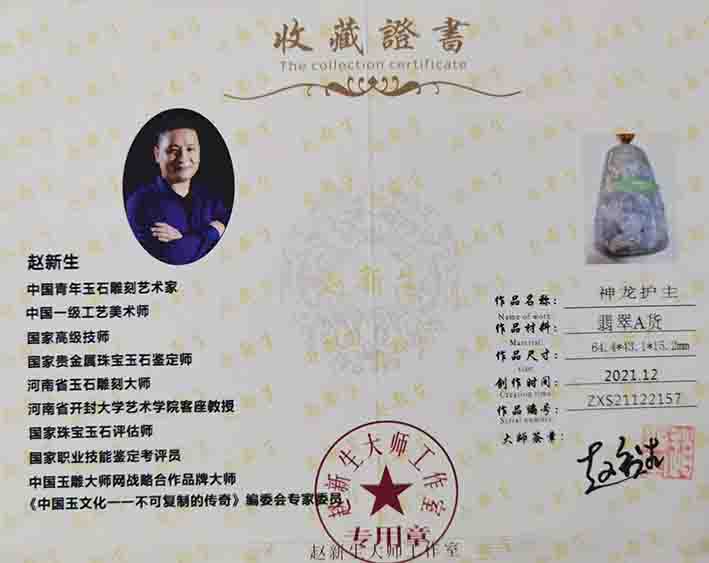 收藏證書
The collection certificate
赵新生
中国青年玉石雕刻艺术家
中国一级工艺美术师
国家高级技师
国家贵金属珠宝玉石鉴定师
河南省玉石雕刻大师
河南省开封大学艺术学院客座教授
国家珠宝玉石评估师
国家职业技能鉴定考评员
中国玉雕大师网战略合作品牌大师
《中国玉文化——不可复制的传奇》编委会专家委员
赵新生
作品名称： 神龙护主
Name of work
作品材料： 翡翠A货
Material
作品尺寸： 64.4*43.1*15.2mm
size
创作时间： 2021.12
Creation time
作品编号： ZXS21122157
Serial number
大师签章：
赵新生
赵新生大师工作室
专用章
赵新生大师工作室